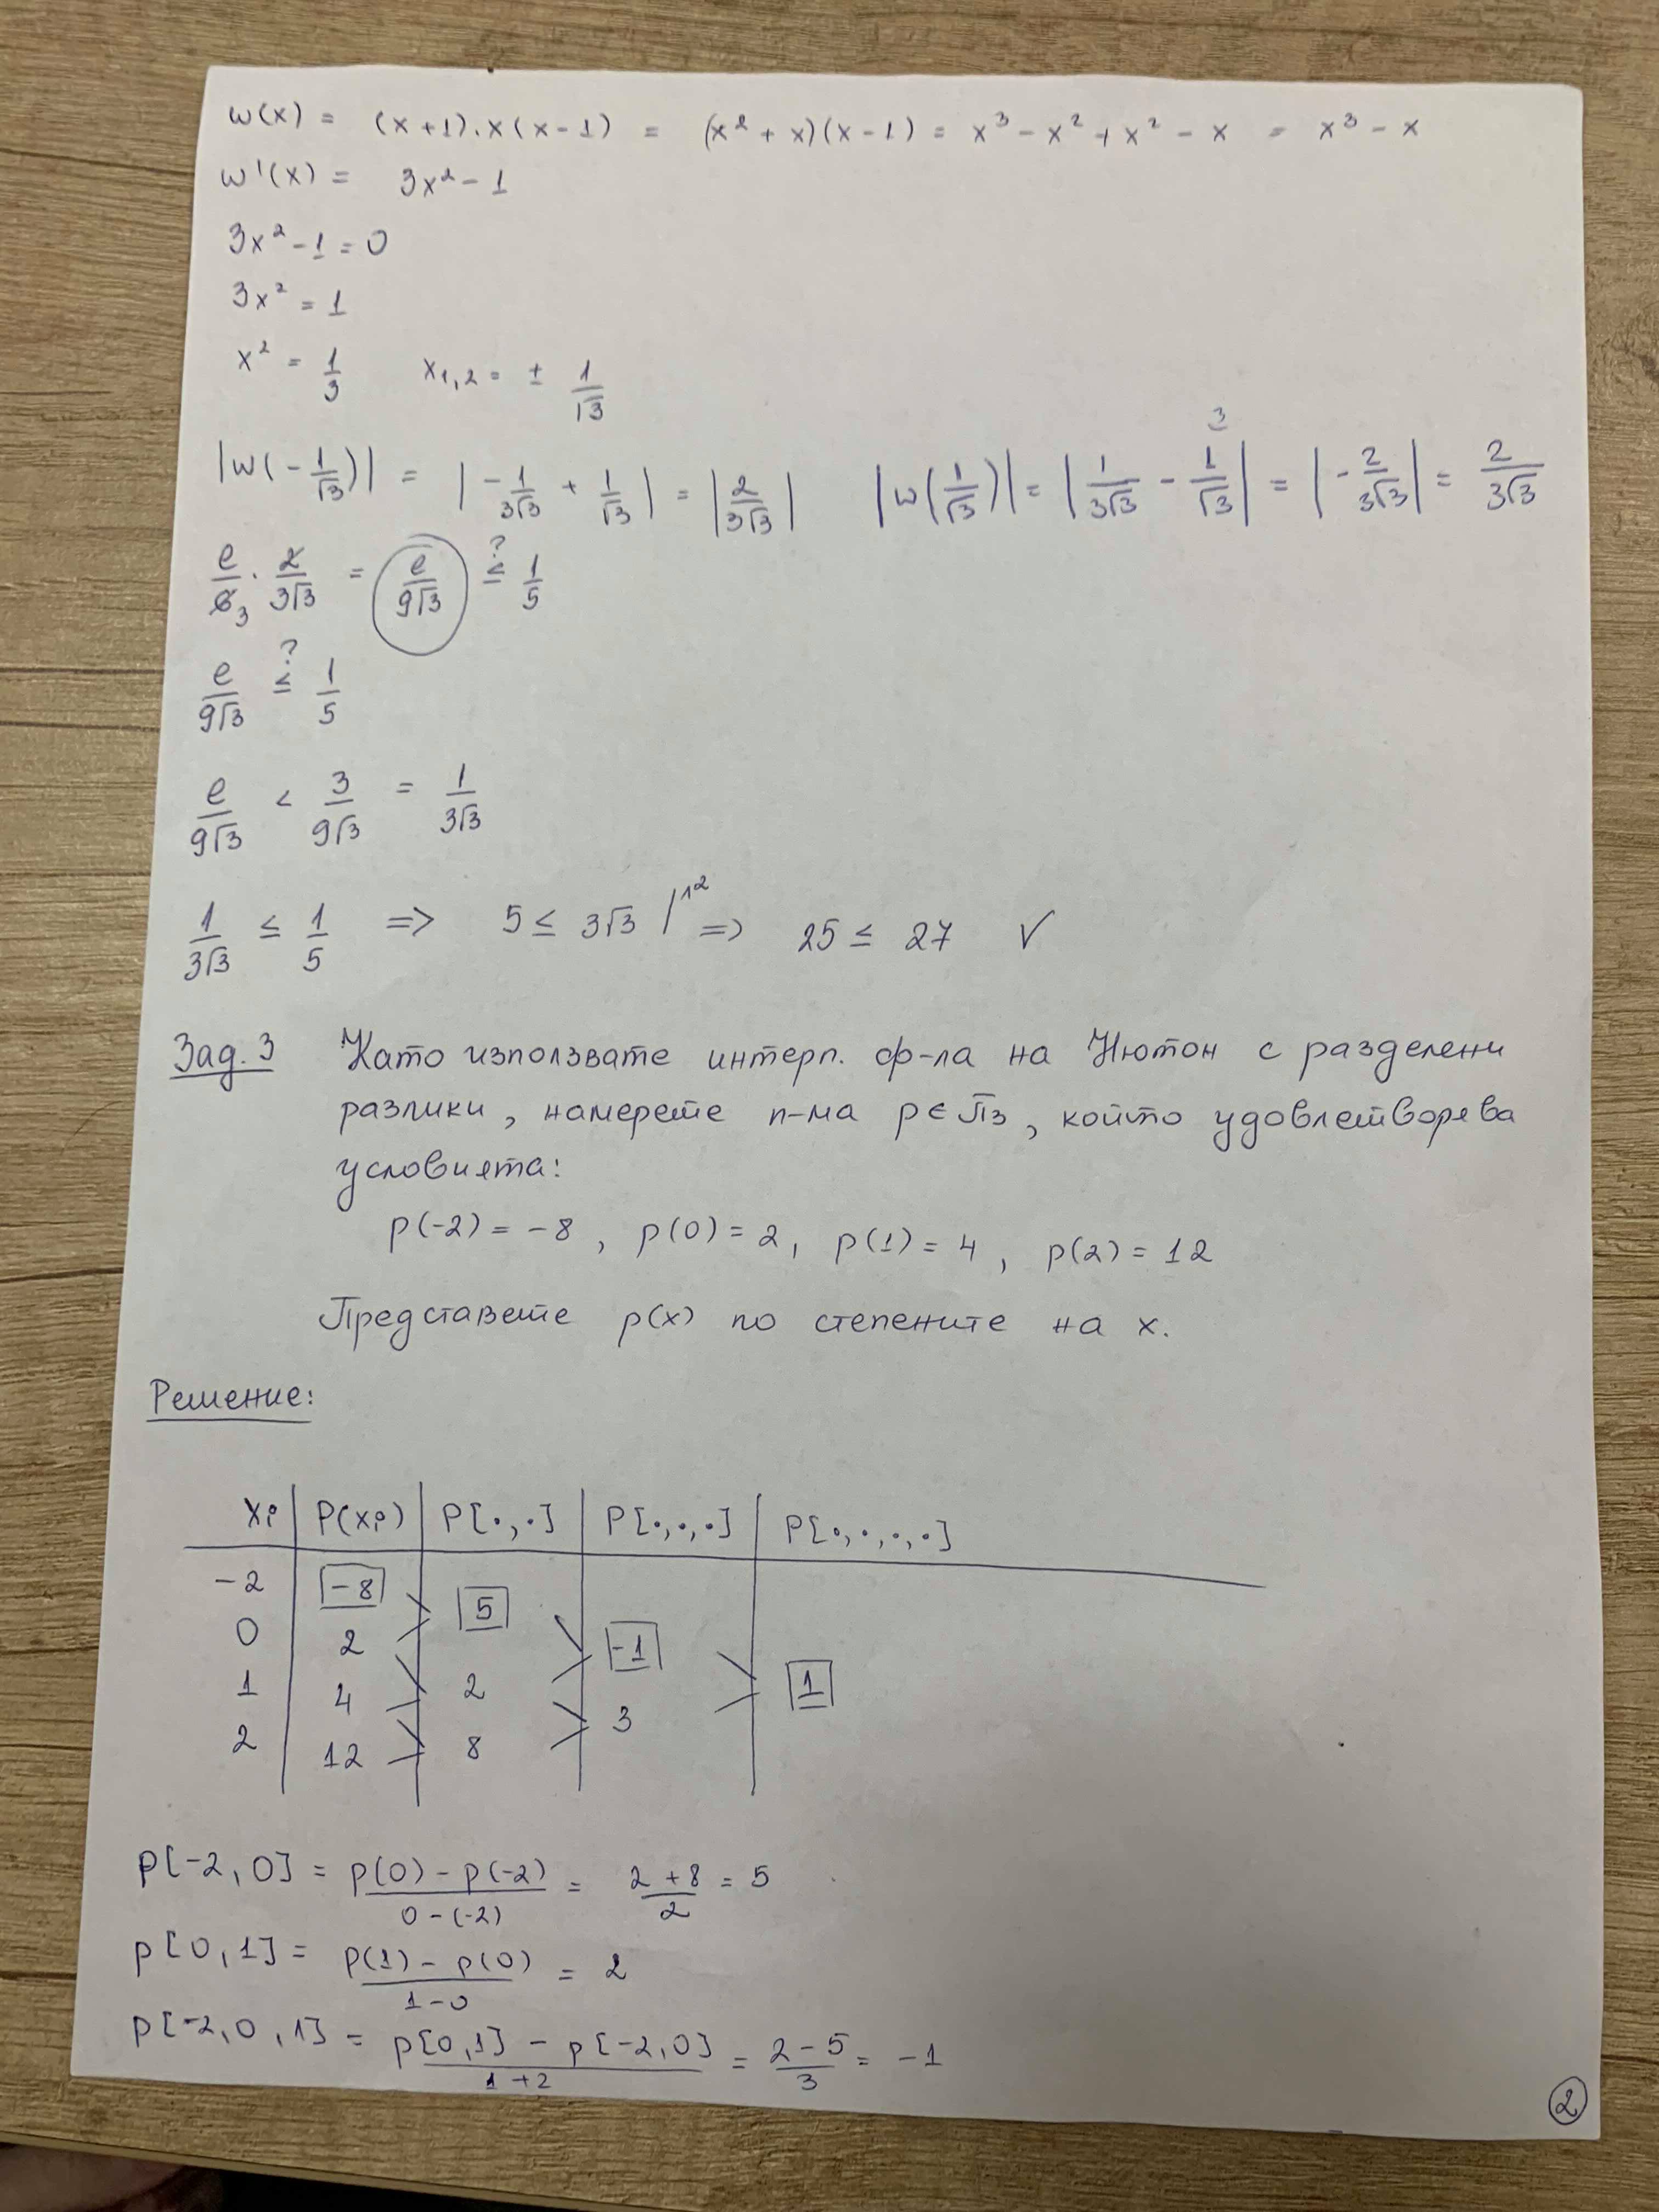 w(x) = (x+1).x(x-1) = (x²+x)(x-1) = x³ - x² + x² - x = x³ - x
w'(x) = 3x² - 1
3x² - 1 = 0
3x² = 1
x² = 1/3   x₁,₂ = ± 1/√3
|w(-1/√3)| = |-1/3√3 + 1/√3| = |2/3√3|   |w(1/√3)| = |1/3√3 - 1/√3| = |-2/3√3| = 2/3√3
e/6 3 . 2/3√3 = e/9√3 ≤? 1/5
e/9√3 ≤? 1/5
e/9√3 < 3/9√3 = 1/3√3
1/3√3 ≤ 1/5 => 5 ≤ 3√3 |^2 => 25 ≤ 27 ✓
Зад. 3 Като използвате интерп. ф-ла на Нютон с разделени
разлики, намерете п-ма p ∈ π₃, който удовлетворява
условията:
p(-2) = -8, p(0) = 2, p(1) = 4, p(2) = 12
Представете p(x) по степените на x.
Решение:
xᵢ | P(xᵢ) | P[.,.] | P[.,.,.] | P[.,.,.,.]
-2 -8
5
0 2 -1
1 4 2 1
3
2 12 8
p[-2,0] = p(0) - p(-2)/0-(-2) = 2+8/2 = 5
p[0,1] = p(1) - p(0)/1-0 = 2
p[-2,0,1] = p[0,1] - p[-2,0]/1+2 = 2-5/3 = -1
2